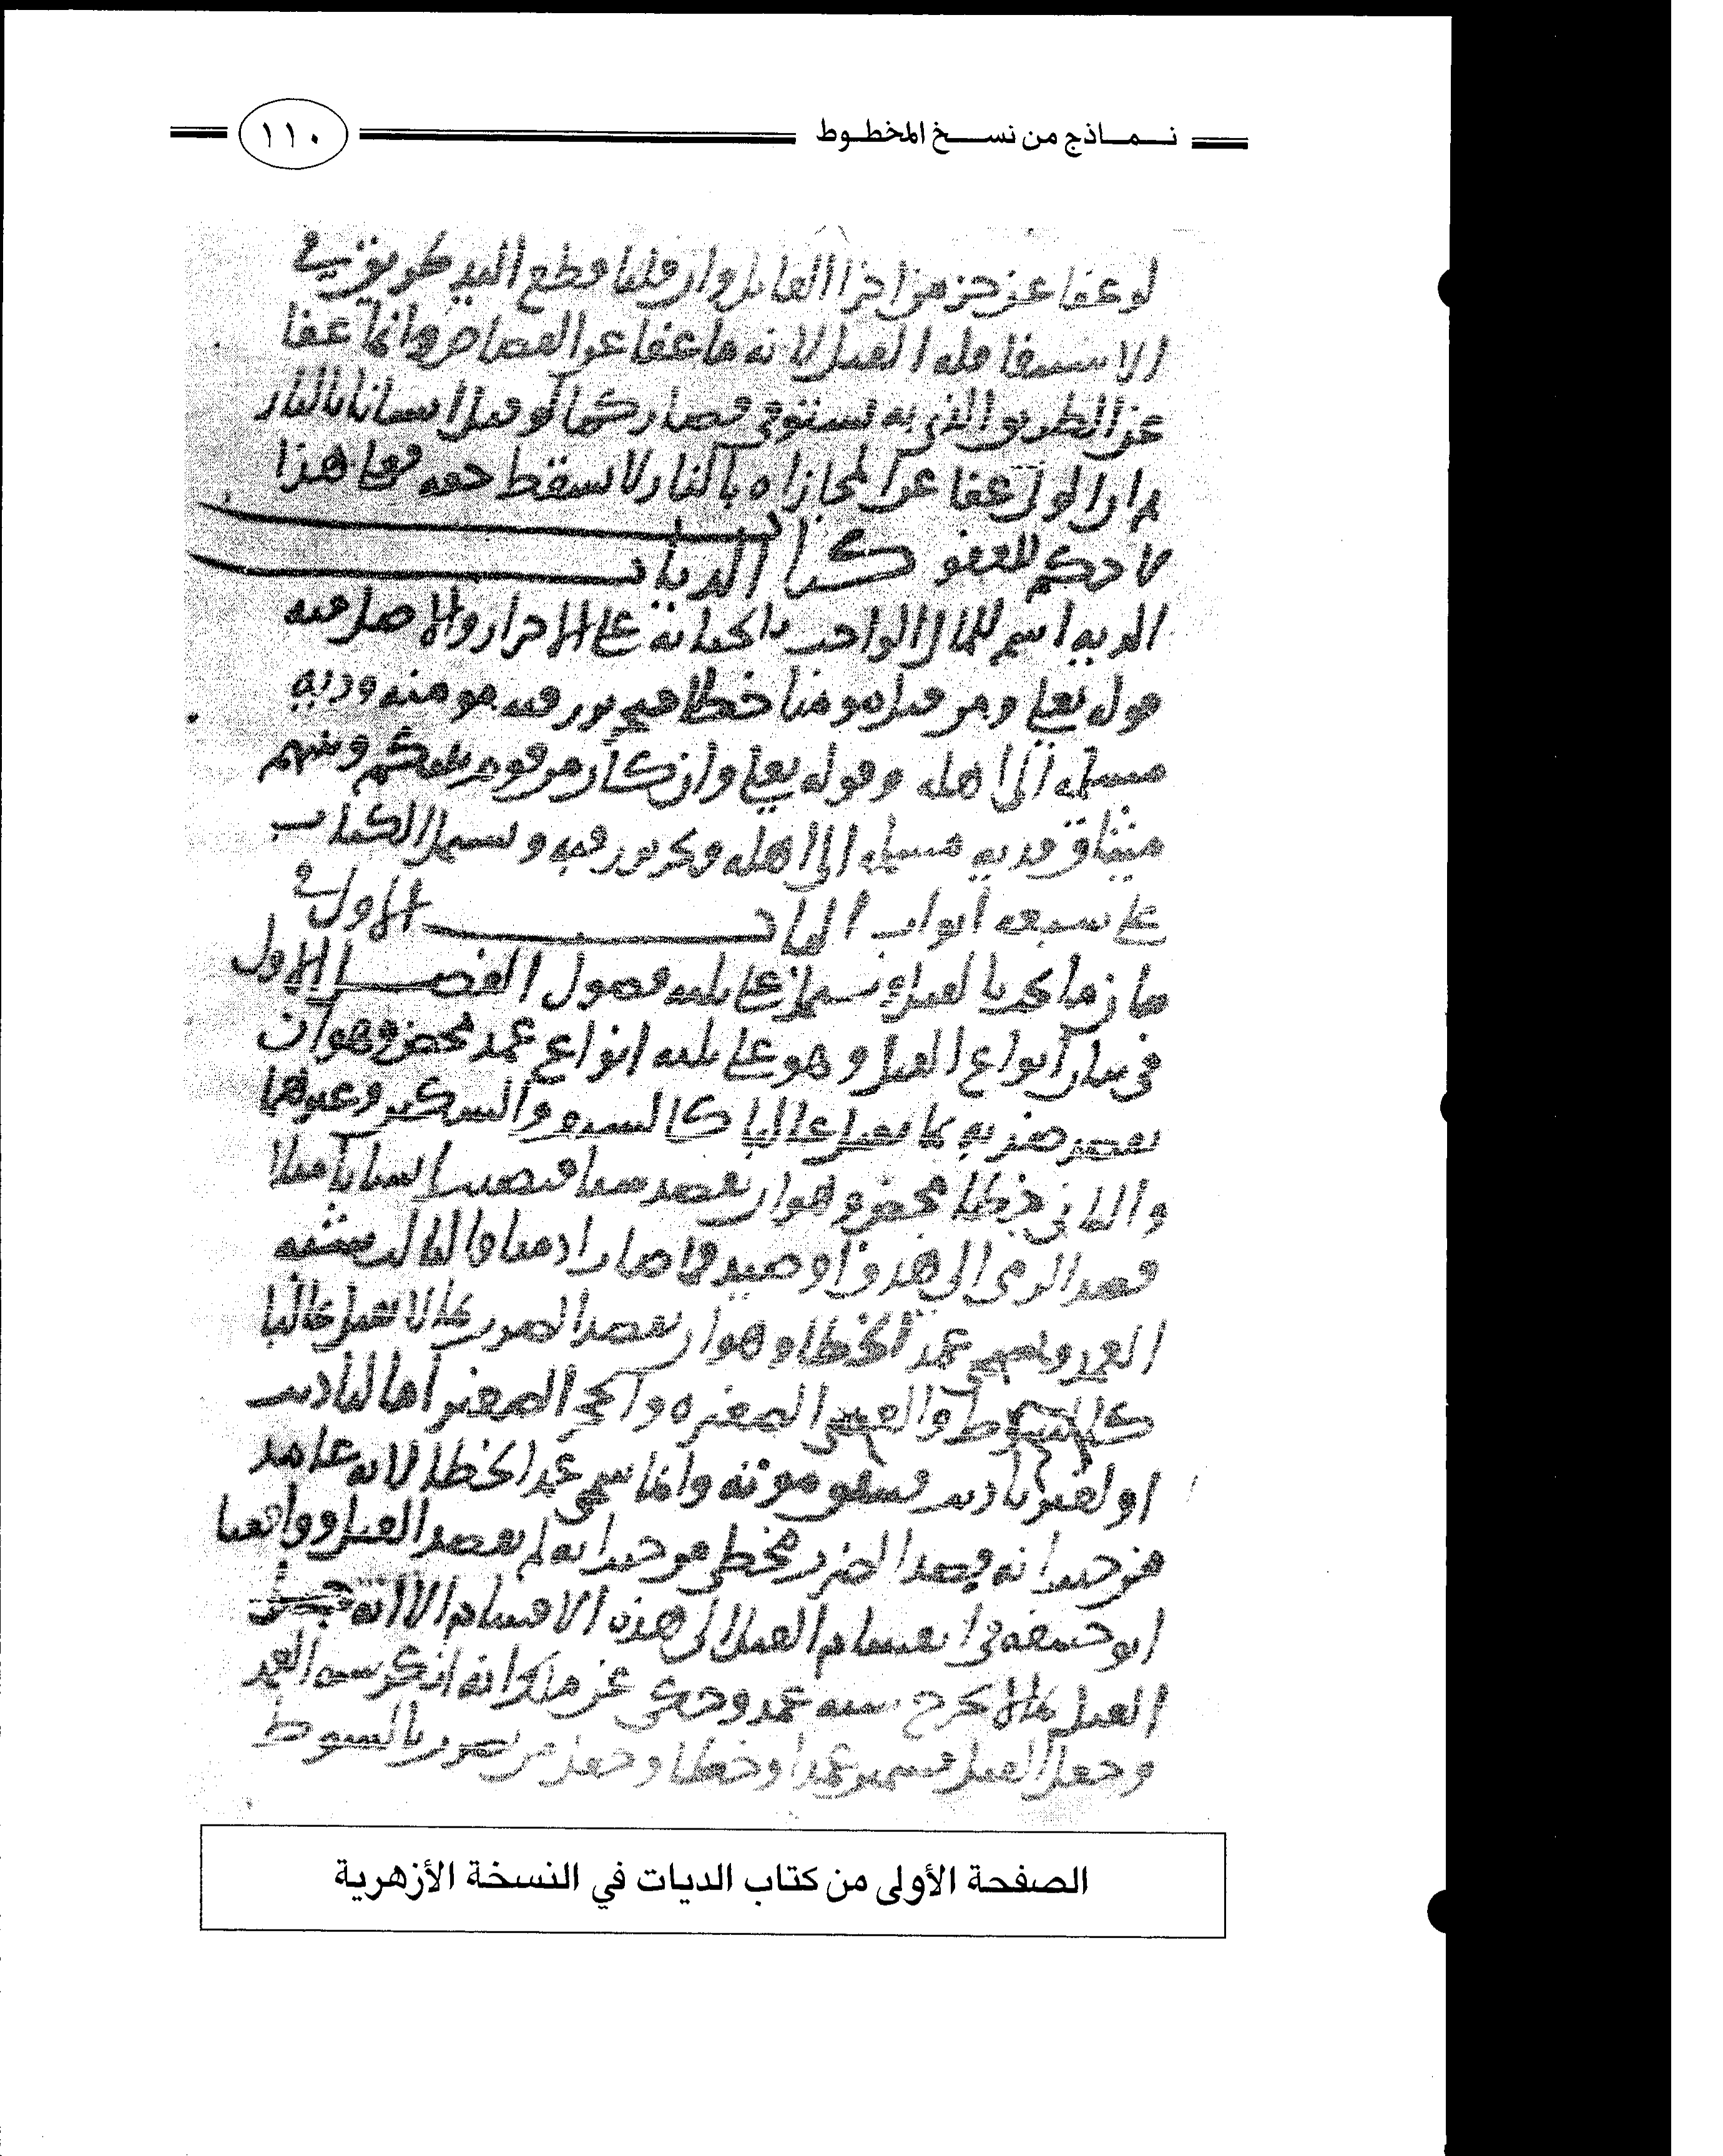 نـمـاذج من نسـخ المخطـوط
١١٠
لو عفا عن جز من اجزا القاتل وان قلنا قطع اليد طريق في
الاستيفا فله القتل لانه ما عفا عن القصاص وانما عفا
عن الطريق الذي به يستوفي فصار كما لو قتل انسانا بالنار
الولي عفا عن المجازاه بالنار لا يسقط حقه فعلى هذا
لا حكم للعفو كتاب الديات
الديه اسم للمال الواجب بالجنايه على الاحرار والاصل فيه
قوله تعلى ومن قتل مومنا خطا فتحرير رقبه مومنه وديه
مسلمه الى اهله وقوله تعلى وان كان من قوم بينكم وبينهم
ميثاق فديه مسلمه الى اهله وتحرير رقبه ويشتمل الكتاب
على سبعه ابواب الباب الاول في
بيان ما يجب بالقتل ويشتمل على ثلثه فصول الفصل الاول
في بيان انواع القتل وهو على ثلثه انواع عمد محض وهو ان
يقصد ضربه بما يقتل غالبا كالسيف والسكين وغيرهما
والثاني خطا محض وهو ان يقصد شيا فيصيب انسانا مثلا
قصد الرمي الى هدف او صيد فاصاب ادميا والثالث شبه
العمد ويسمى عمد الخطا وهو ان يقصد الضرب بما لا يقتل غالبا
كالسوط والعصى الصغيره والحجر الصغير اما لتاديب
او لغير تاديب فيتفق موته وانما سمي عمد الخطا لانه عامد
من حيث انه قصد الضرب مخطي من حيث انه لم يقصد القتل ووافقنا
ابو حنيفه في انقسام القتل الى هذه الاقسام الا انه جعل
القتل بما لا يجرح شبه عمد وحكي عن مالك انه انكر شبه العمد
وجعل القتل قسمين عمدا وخطا وجعل من يضرب بالسوط
الصفحة الأولى من كتاب الديات في النسخة الأزهرية